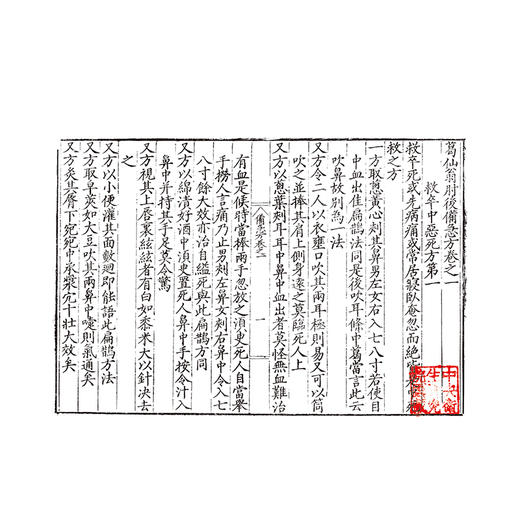 葛仙翁肘後備急方卷之一
救卒中惡死方第一
救卒死或先病痛或常居寢臥奄忽而絕皆是中
救之方
一方取葱黃心刺其鼻男左女右入七八寸若使目
中血出佳扁鵲法同是後吹耳條中葛當言此云
吹鼻故別為一法
又方令二人以衣壅口吹其兩耳極則易又可以筒
吹之並捧其肩上側身遠之莫臨死人上
又方以葱葉刺耳耳中鼻中血出者莫怪無血難治
有血是候時當捧兩手忽放之須臾死人自當舉
手撈人言痛乃止男刺左鼻女刺右鼻中令入七
八寸餘大效亦治自縊死與此扁鵲方同
又方以綿漬好酒中須臾置死人鼻中手按令汁入
鼻中并持其手足莫令驚
又方視其上唇裏絃絃者有白如黍米大以針決去
之
又方以小便灌其面數迴即能語此扁鵲方法
又方取皂莢如大豆吹其兩鼻中嚏則氣通矣
又方灸其唇下宛宛中承漿穴十壯大效矣